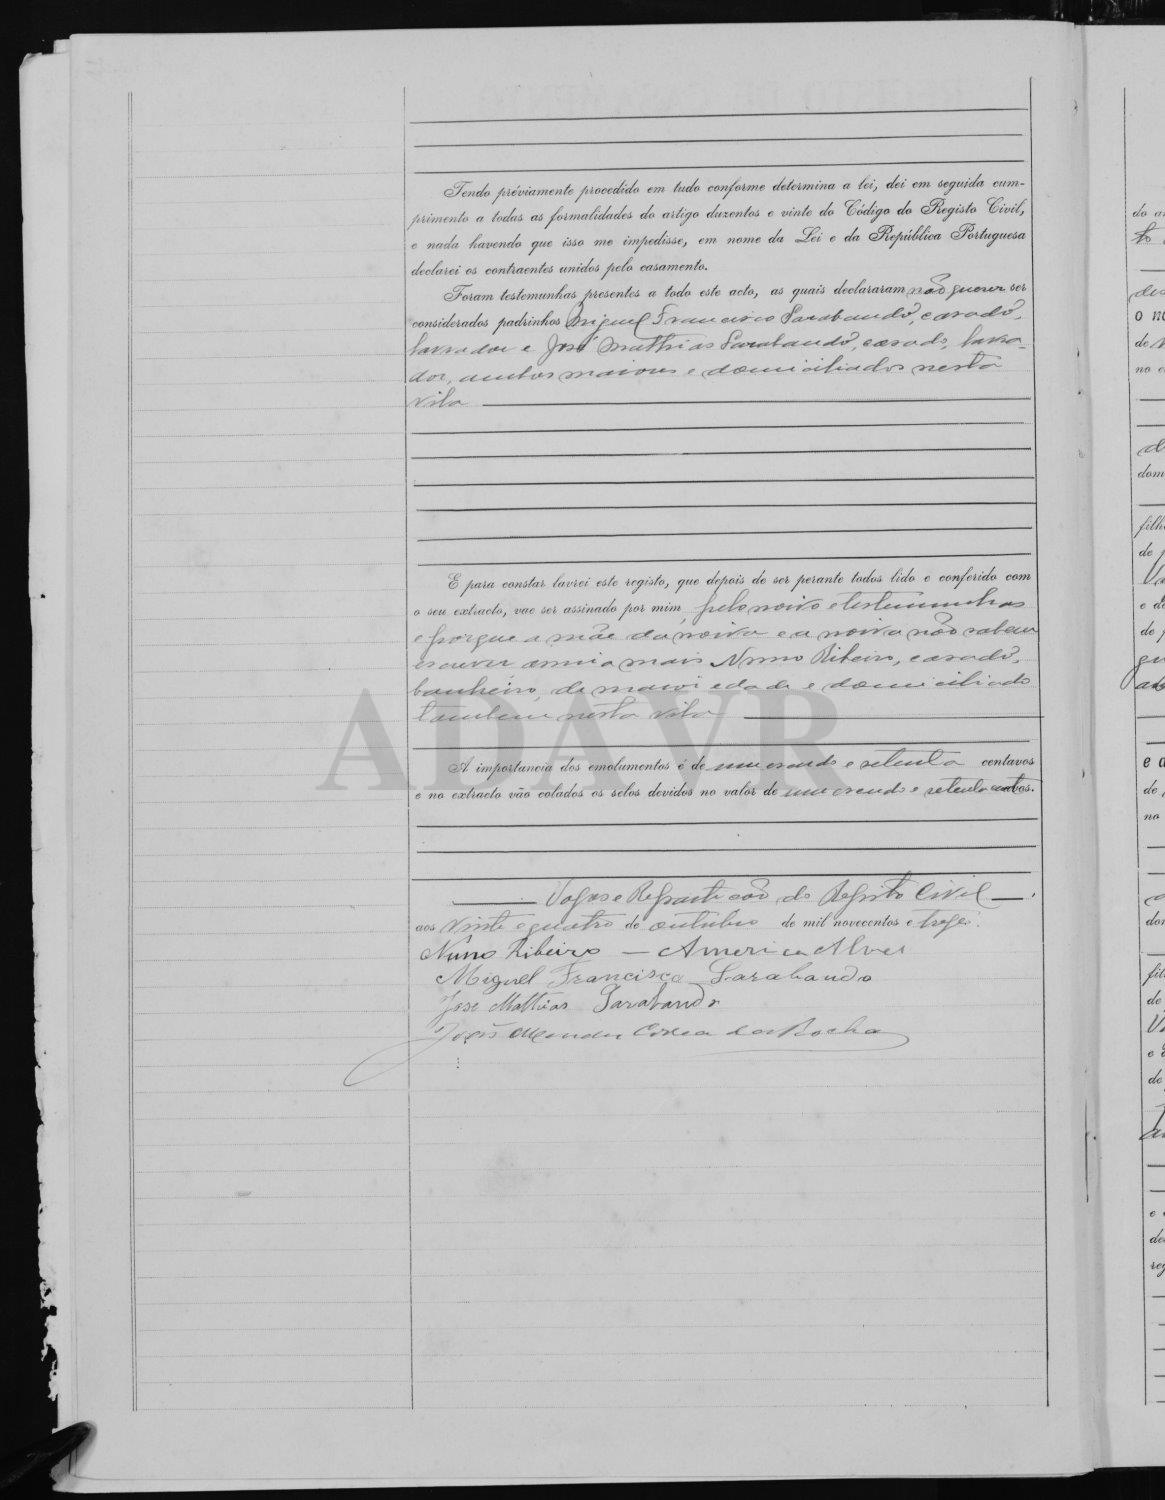 Tendo préviamente procedido em tudo conforme determina a lei, dei em seguida cum-
primento a todas as formalidades do artigo duzentos e vinte do Código do Registo Civil,
e nada havendo que isso me impedisse, em nome da Lei e da República Portuguesa
declarei os contraentes unidos pelo casamento.
Foram testemunhas presentes a todo este acto, as quais declararam não querer ser
considerados padrinhos Miguel Francisco Sarabando, casado,
lavrador e José Mathias Sarabando, casado, lavra-
dor, ambos maiores e domiciliados nesta
vila
E para constar lavrei este registo, que depois de ser perante todos lido e conferido com
o seu extracto, vae ser assinado por mim, pelo noivo e testemunhas
e porque a mãe da noiva e a noiva não sabem
escrever assina mais Nuno Ribeiro, casado,
banheiro, de maior edade e domiciliado
tambem nesta vila
ADAVR
A importancia dos emolumentos é de um escudo e setenta centavos
e no extracto vão colados os selos devidos no valor de um escudo e setenta centavos.
Vagos e Repartição do Registo Civil
aos vinte e quatro de outubro de mil novecentos e treze.
Nuno Ribeiro — Americo Alves
Miguel Francisco Sarabando
Jose Mathias Sarabando
Correa da Rocha
do
de
no
dom
filh
de
e de